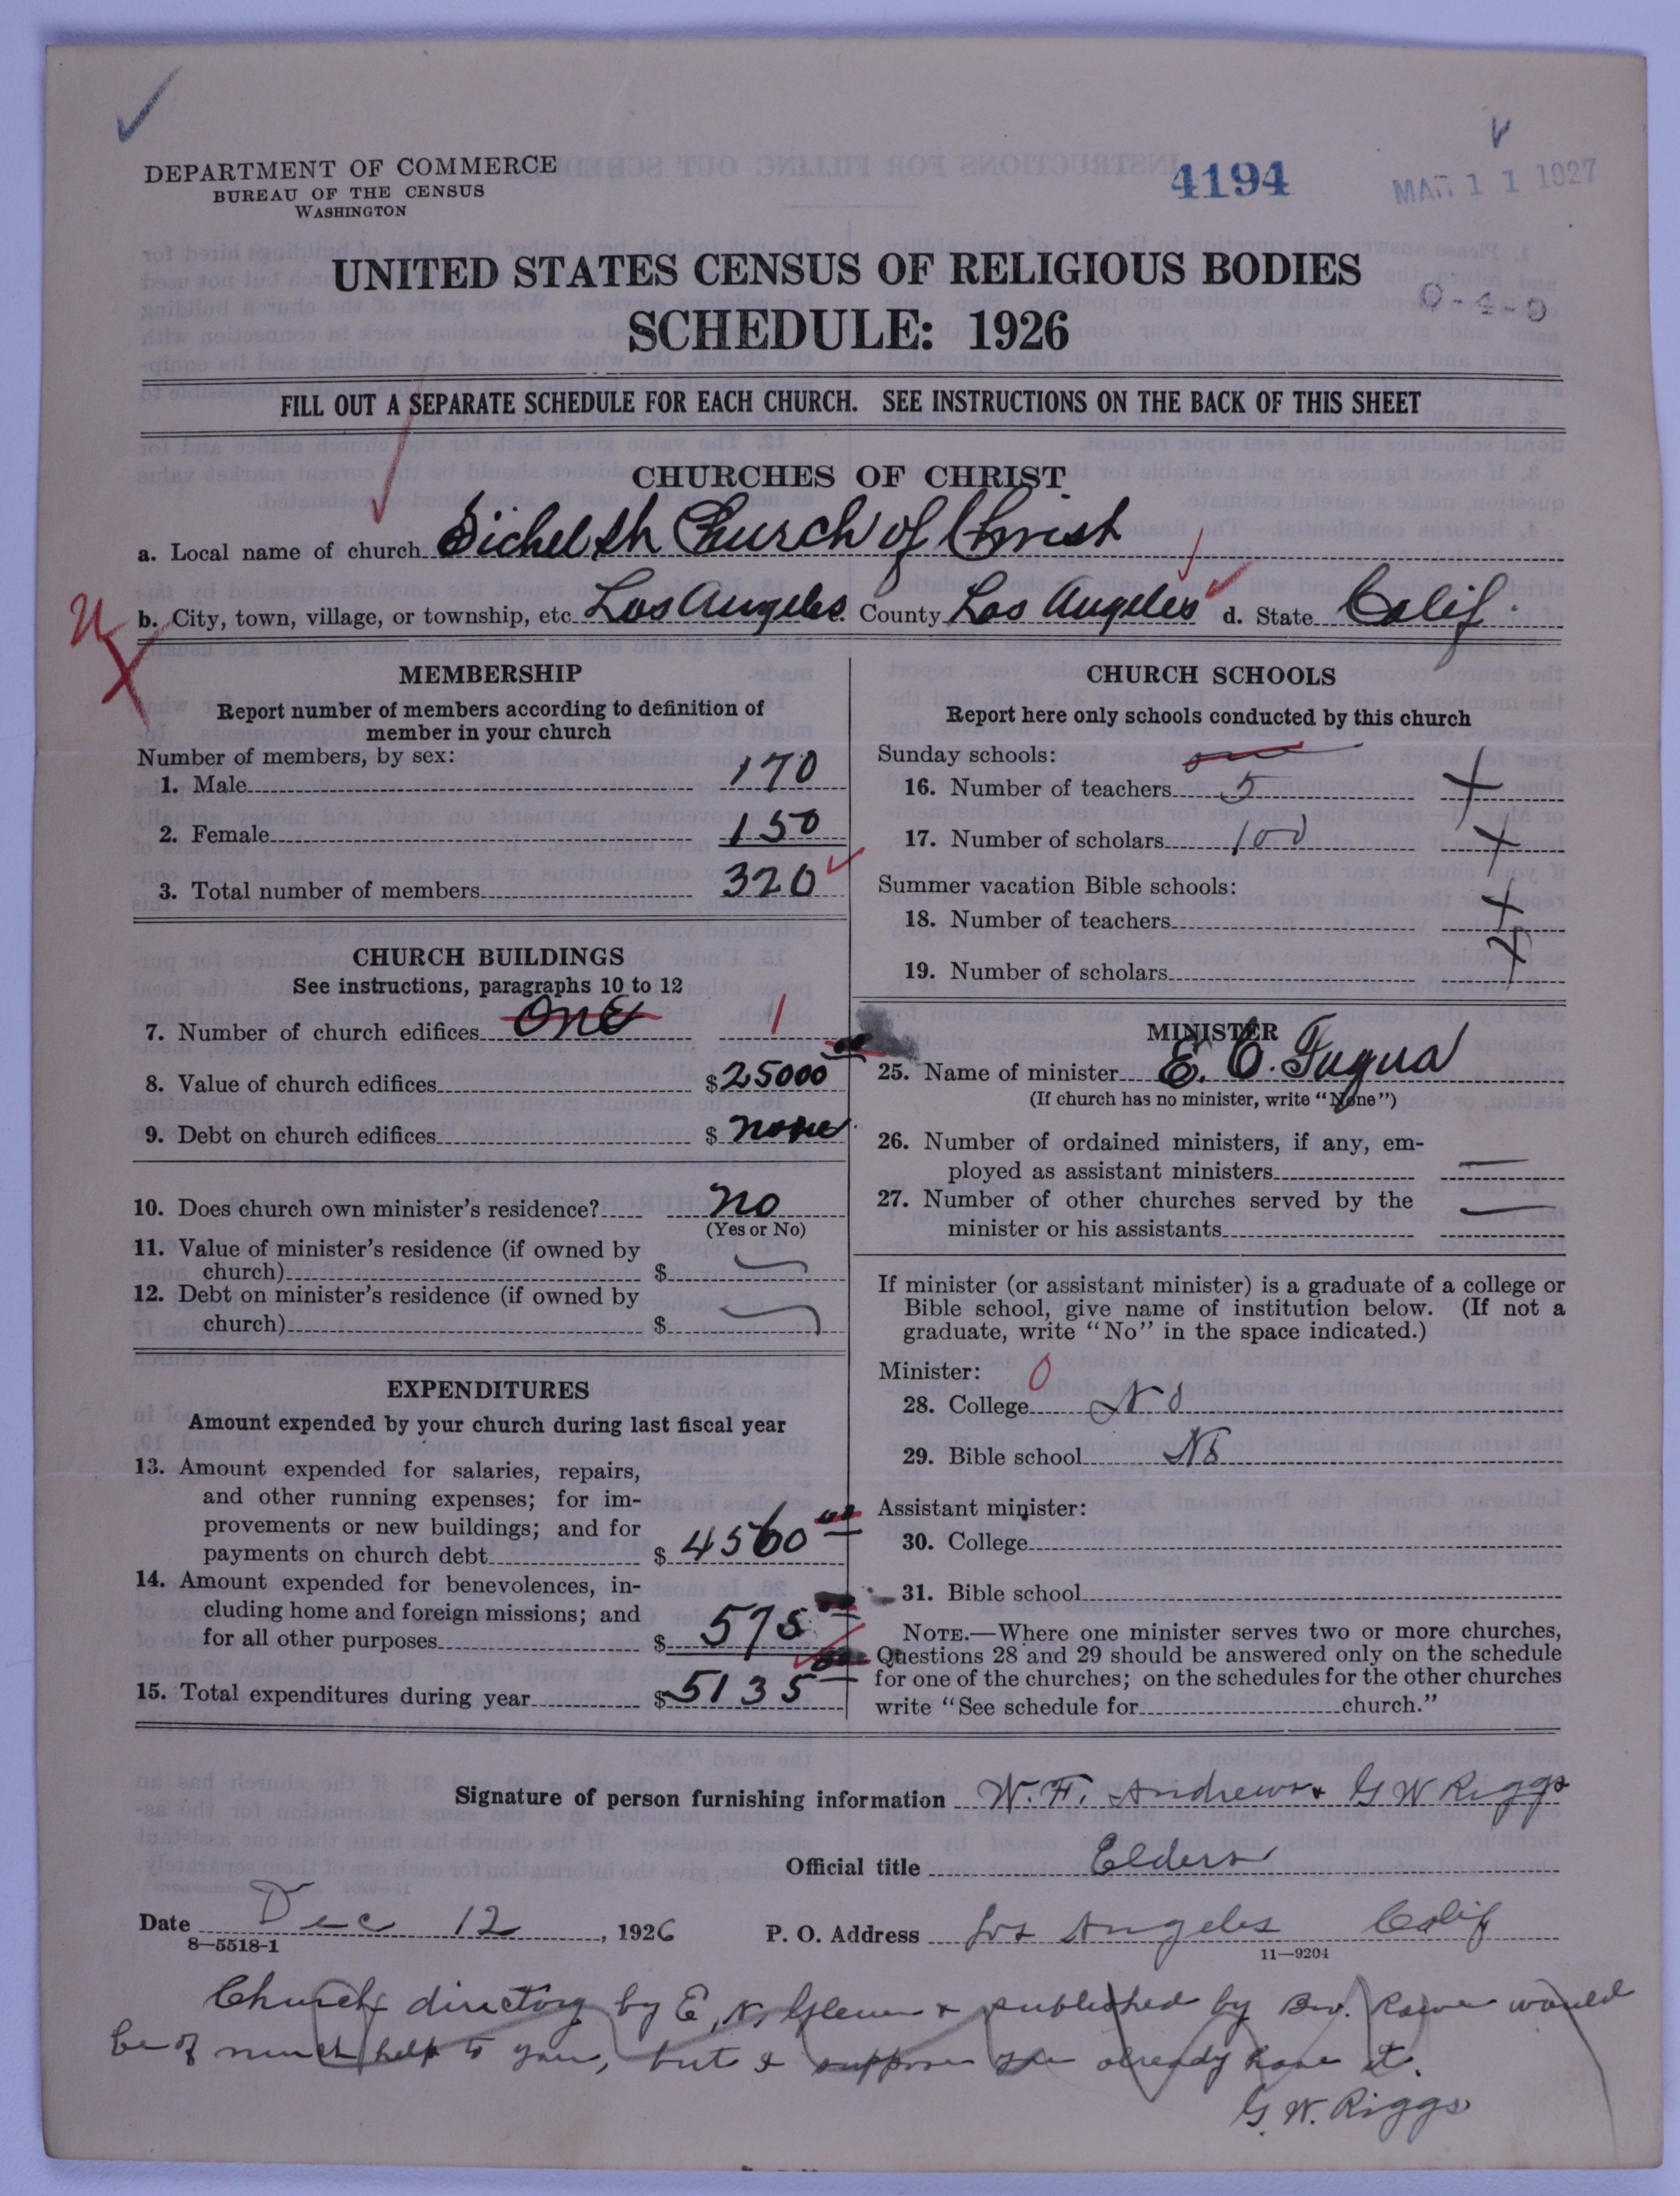 DEPARTMENT OF COMMERCE
BUREAU OF THE CENSUS
WASHINGTON
4194
MAR 11 1927
UNITED STATES CENSUS OF RELIGIOUS BODIES
SCHEDULE: 1926
0-4-9
FILL OUT A SEPARATE SCHEDULE FOR EACH CHURCH. SEE INSTRUCTIONS ON THE BACK OF THIS SHEET
CHURCHES OF CHRIST
a. Local name of church Sichel St Church of Christ
b. City, town, village, or township, etc. Los Angeles County Los Angeles d. State Calif.
MEMBERSHIP
Report number of members according to definition of
member in your church
Number of members, by sex:
1. Male 170
2. Female 150
3. Total number of members 320
CHURCH BUILDINGS
See instructions, paragraphs 10 to 12
7. Number of church edifices One 1
8. Value of church edifices $25000
9. Debt on church edifices $ none
10. Does church own minister's residence? no
(Yes or No)
11. Value of minister's residence (if owned by
church) $
12. Debt on minister's residence (if owned by
church) $
EXPENDITURES
Amount expended by your church during last fiscal year
13. Amount expended for salaries, repairs,
and other running expenses; for im-
provements or new buildings; and for
payments on church debt $ 4560 00
14. Amount expended for benevolences, in-
cluding home and foreign missions; and
for all other purposes $ 575
15. Total expenditures during year $5135
CHURCH SCHOOLS
Report here only schools conducted by this church
Sunday schools:
16. Number of teachers 5
17. Number of scholars 100
Summer vacation Bible schools:
18. Number of teachers
19. Number of scholars
MINISTER
25. Name of minister E. C. Fuqua
(If church has no minister, write "None")
26. Number of ordained ministers, if any, em-
ployed as assistant ministers —
27. Number of other churches served by the
minister or his assistants —
If minister (or assistant minister) is a graduate of a college or
Bible school, give name of institution below. (If not a
graduate, write "No" in the space indicated.)
Minister: 0
28. College No
29. Bible school No
Assistant minister:
30. College
31. Bible school
NOTE.—Where one minister serves two or more churches,
Questions 28 and 29 should be answered only on the schedule
for one of the churches; on the schedules for the other churches
write "See schedule for church."
Signature of person furnishing information W. F. Andrews + G W Riggs
Official title Elders
Date Dec 12, 1926 P. O. Address Los Angeles Calif
8—5518-1
11—9204
Church directory by E. N. Glenn + published by Bro. Rowe would
be of much help to you, but I suppose you already have it.
G. W. Riggs